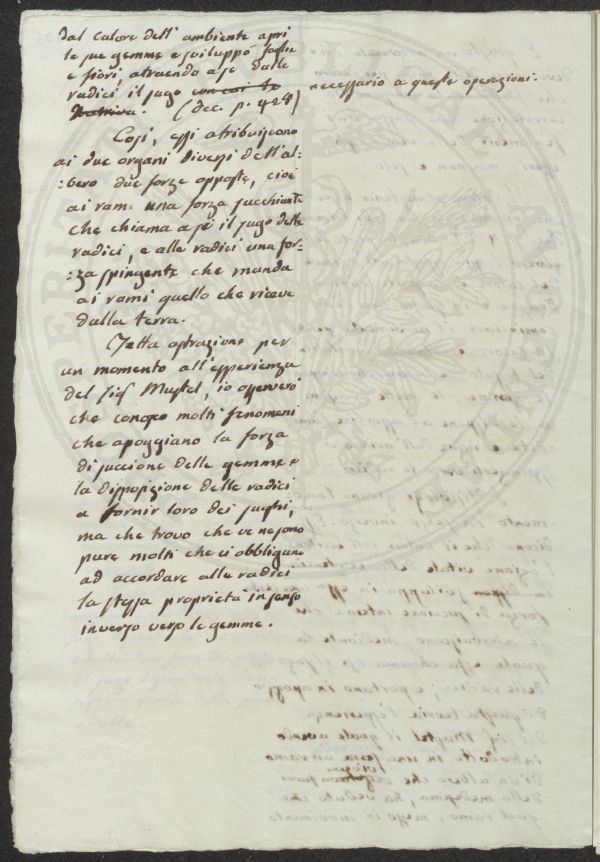 dal calore dell' ambiente aprì
le sue gemme e sviluppò foglie
e fiori, atraendo a se dalle
radici il sugo con cui le necessario a queste operazioni.
Nutriva. (dec. p. 424)
Così, essi atribuiscono
ai due organi diversi dell'al=
=bero due forze opposte, cioè
ai rami una forza succhiante
che chiama a se il sugo delle
radici, e alle radici una for=
=za spingente che manda
ai rami quello che riceve
dalla terra.
Fatta astrazione per
un momento all'esperienza
del sig.r Mustel, io osserverò
che conosco molti fenomeni
che apoggiano la forza
di suczione delle gemme e
la disposizione delle radici
a fornir loro dei sughi,
ma che trovo che ve ne sono
pure molti che ci obbligano
ad accordare alle radici
la stessa proprietà in senso
inverso verso le gemme.